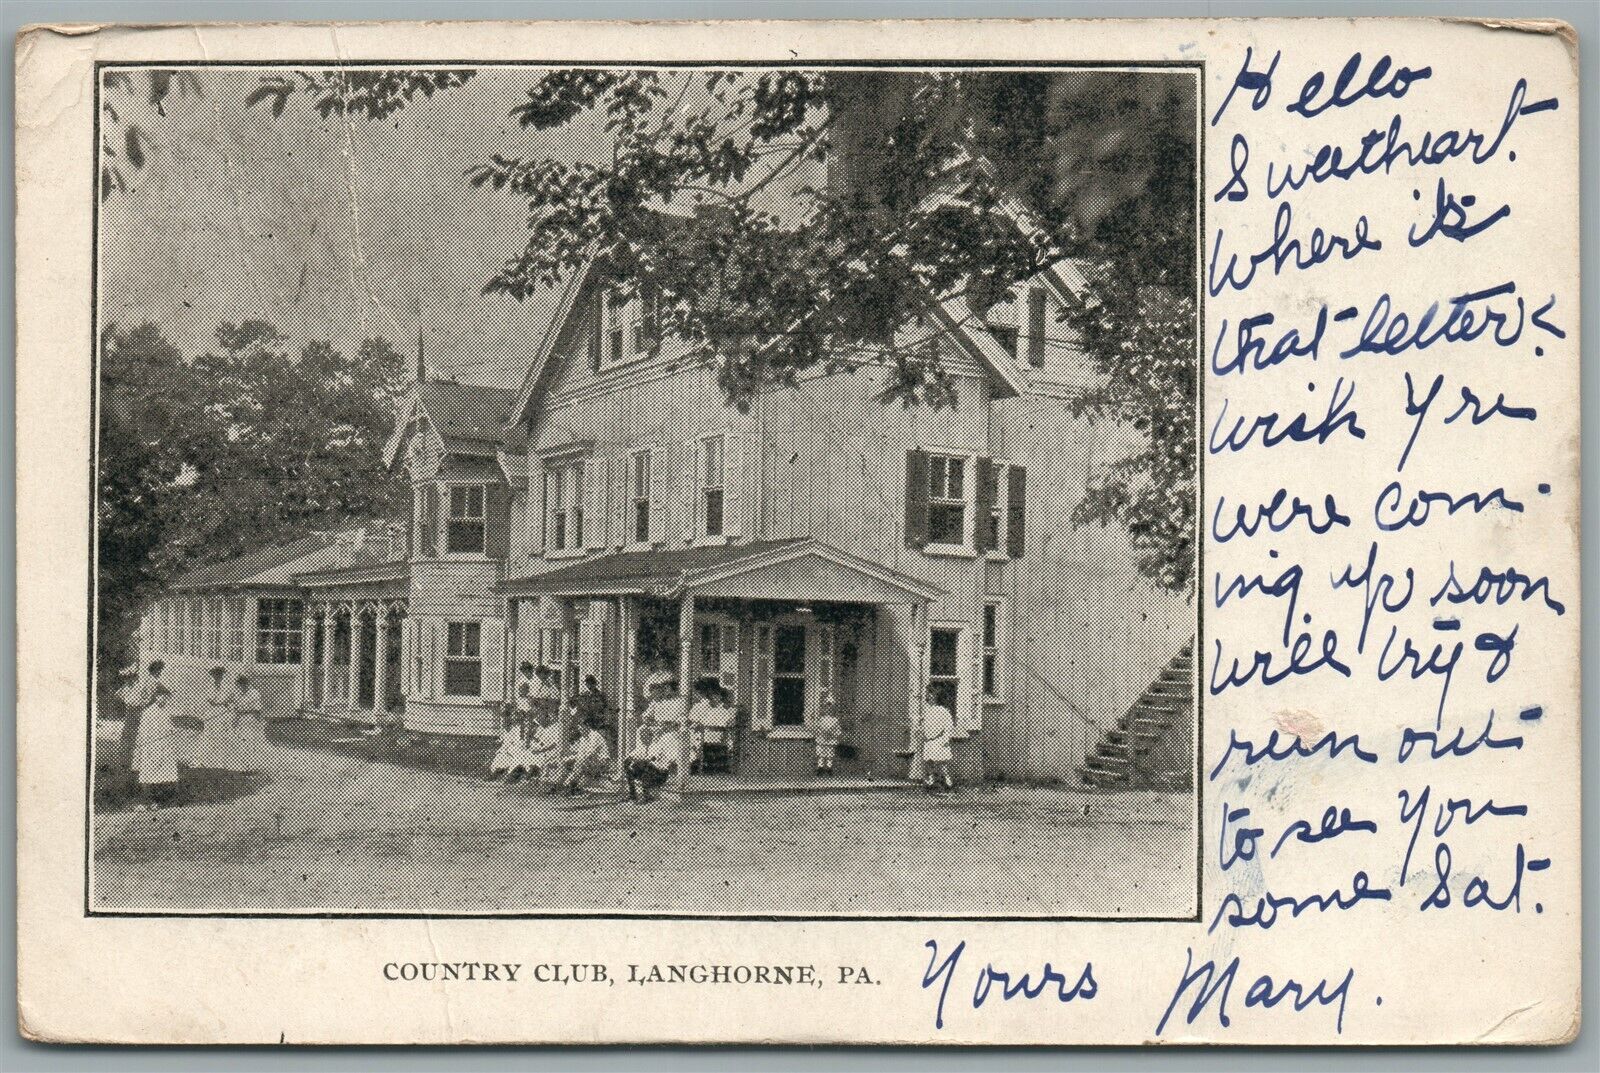 Hello
Sweetheart.
Where is
that letter?
Wish Yre
were com-
ing up soon
will try &
run out
to see you
some Sat.
Yours Mary.
COUNTRY CLUB, LANGHORNE, PA.